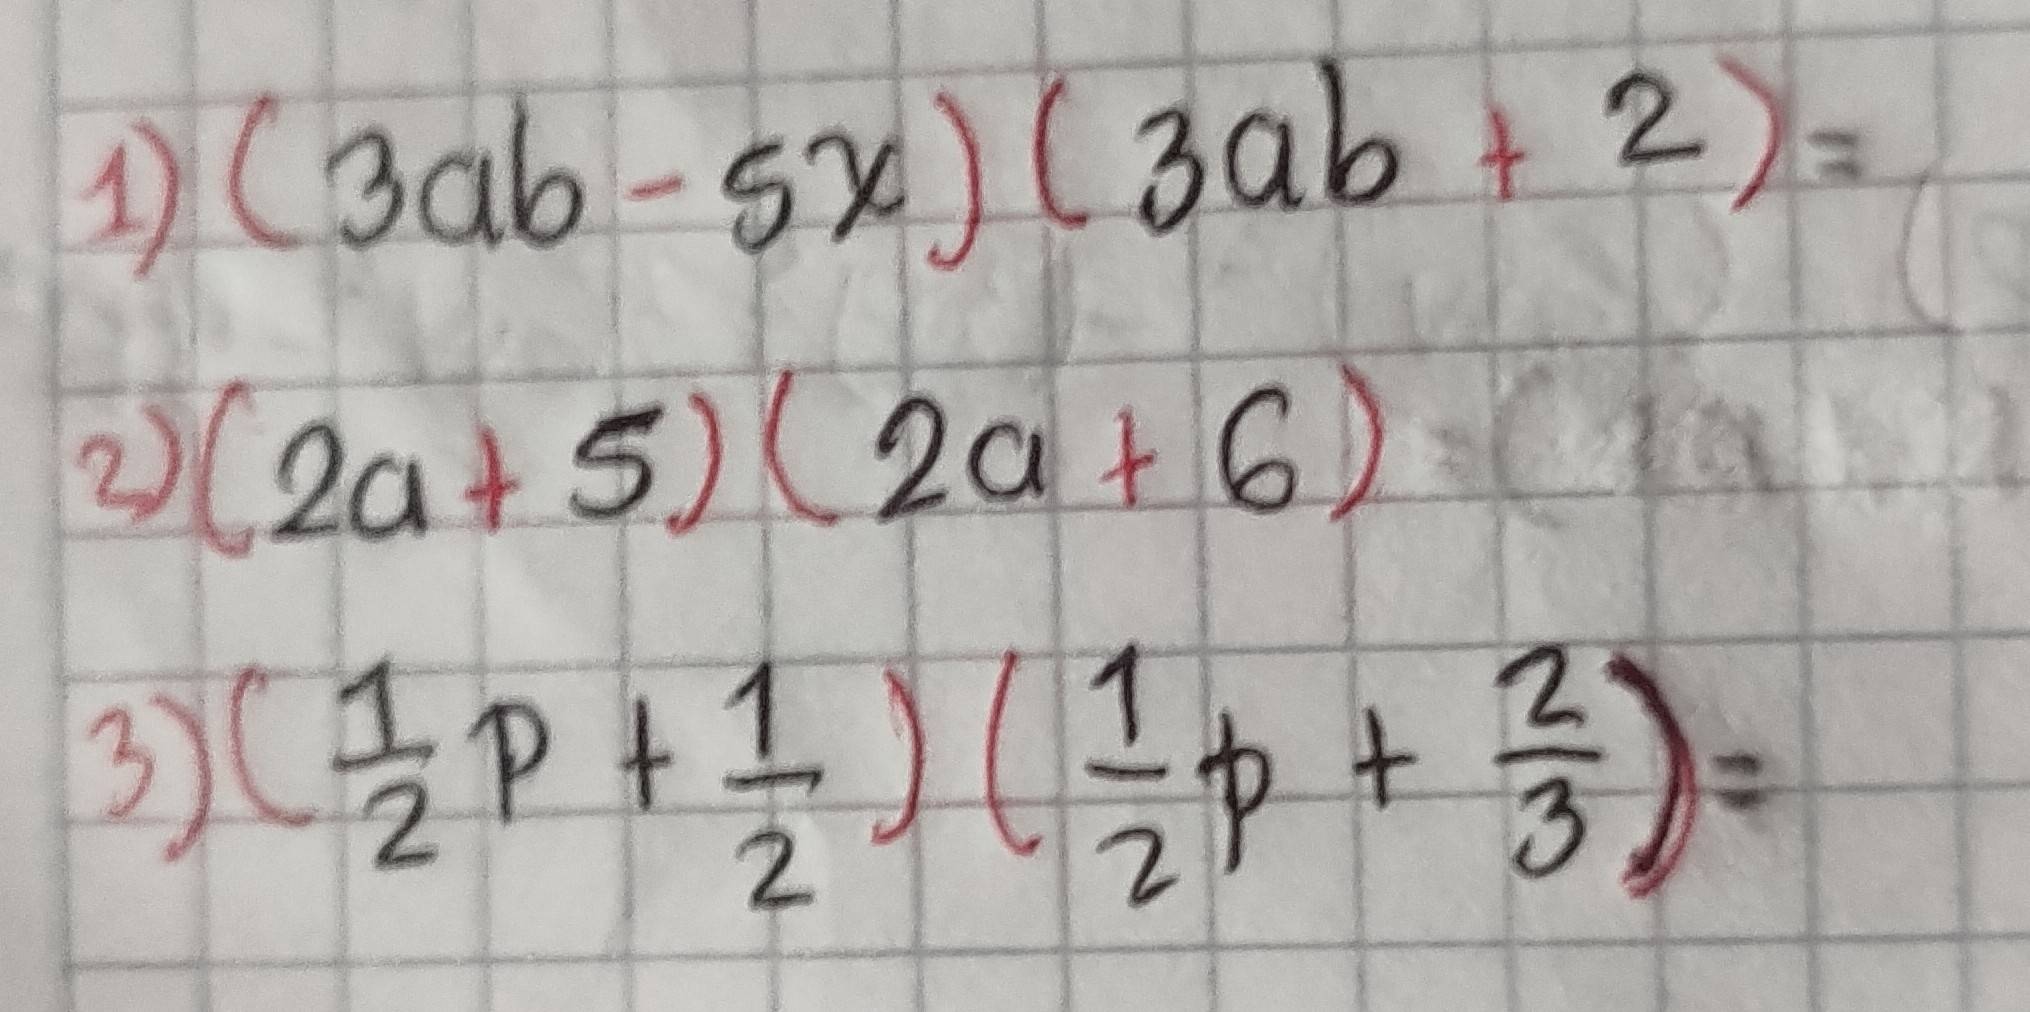 1) (3ab - 5x) (3ab + 2) =
2) (2a + 5) (2a + 6)
3) (1/2 p + 1/2) (1/2 p + 2/3) =